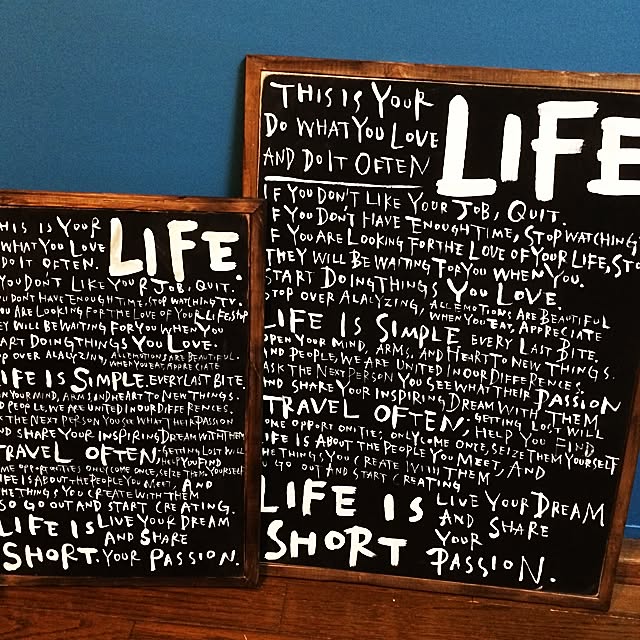 THIS IS YOUR LIFE.
WHAT YOU LOVE
DO IT OFTEN.
YOU DON'T LIKE YOUR JOB, QUIT.
U DON'T HAVE ENOUGH TIME, STOP WATCHING TV.
OU ARE LOOKING FOR THE LOVE OF YOUR LIFE, STOP
EY WILL BE WAITING FOR YOU WHEN YOU
ART DOING THINGS YOU LOVE.
P OVER ALALYZING, ALL EMOTIONS ARE BEAUTIFUL.
WHEN YOU EAT, APPRECIATE
LIFE IS SIMPLE. EVERY LAST BITE,
N YOUR MIND, ARMS AND HEART TO NEW THINGS.
D PEOPLE, WE ARE UNITED IN OUR DIFFERENCES.
K THE NEXT PERSON YOU SEE WHAT THEIR PASSION
AND SHARE YOUR INSPIRING DREAM WITH THEM
TRAVEL OFTEN; GETTING LOST WILL
HELP YOU FIND
ME OPPORTUNITIES ONLY COME ONCE, SEIZE THEM YOURSELF
IFE IS ABOUT THE PEOPLE YOU MEET, AND
HE THINGS YOU CREATE WITH THEM
SO GO OUT AND START CREATING.
LIFE IS LIVE YOUR DREAM
AND SHARE
SHORT. YOUR PASSION.
THIS IS YOUR LIFE
DO WHAT YOU LOVE
AND DO IT OFTEN
IF YOU DON'T LIKE YOUR JOB, QUIT.
IF YOU DON'T HAVE ENOUGH TIME, STOP WATCHING
IF YOU ARE LOOKING FOR THE LOVE OF YOUR LIFE, STO
THEY WILL BE WAITING FOR YOU WHEN YOU.
START DOING THINGS YOU LOVE.
STOP OVER ALALYZING, ALL EMOTIONS ARE BEAUTIFUL
WHEN YOU EAT, APPRECIATE
LIFE IS SIMPLE EVERY LAST BITE.
OPEN YOUR MIND, ARMS, AND HEART TO NEW THINGS.
AND PEOPLE, WE ARE UNITED IN OUR DIFFERENCES.
ASK THE NEXT PERSON YOU SEE WHAT THEIR PASSION
AND SHARE YOUR INSPIRING DREAM WITH THEM
TRAVEL OFTEN; GETTING LOST WILL
HELP YOU FIND
OME OPPORTUNITIES, ONLY COME ONCE, SEIZE THEM YOURSELF
LIFE IS ABOUT THE PEOPLE YOU MEET, AND
HE THINGS YOU CREATE WITH THEM
O GO OUT AND START CREATING
LIFE IS LIVE YOUR DREAM
AND SHARE
SHORT YOUR
PASSION.